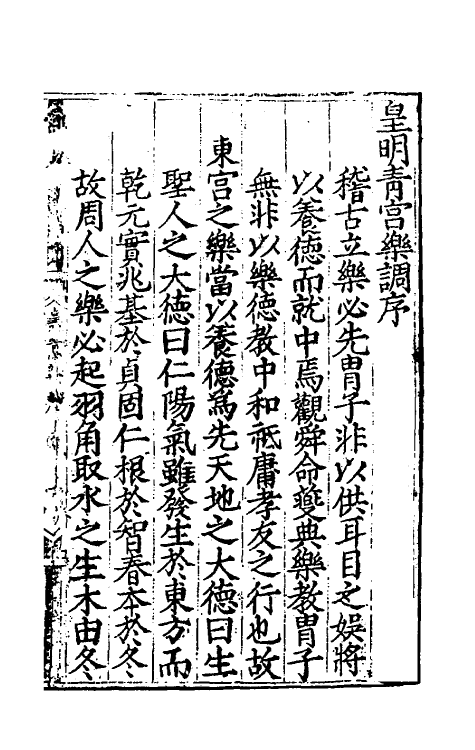 皇明青宮樂調序
稽古立樂必先胄子非以供耳目之娛將
以養德而就中焉觀舜命夔典樂教胄子
無非以樂德教中和祗庸孝友之行也故
東宮之樂當以養德為先天地之大德曰生
聖人之大德曰仁陽氣雖發生於東方而
乾元實兆基於貞固仁根於智春本於冬
故周人之樂必起羽角取水之生木由冬